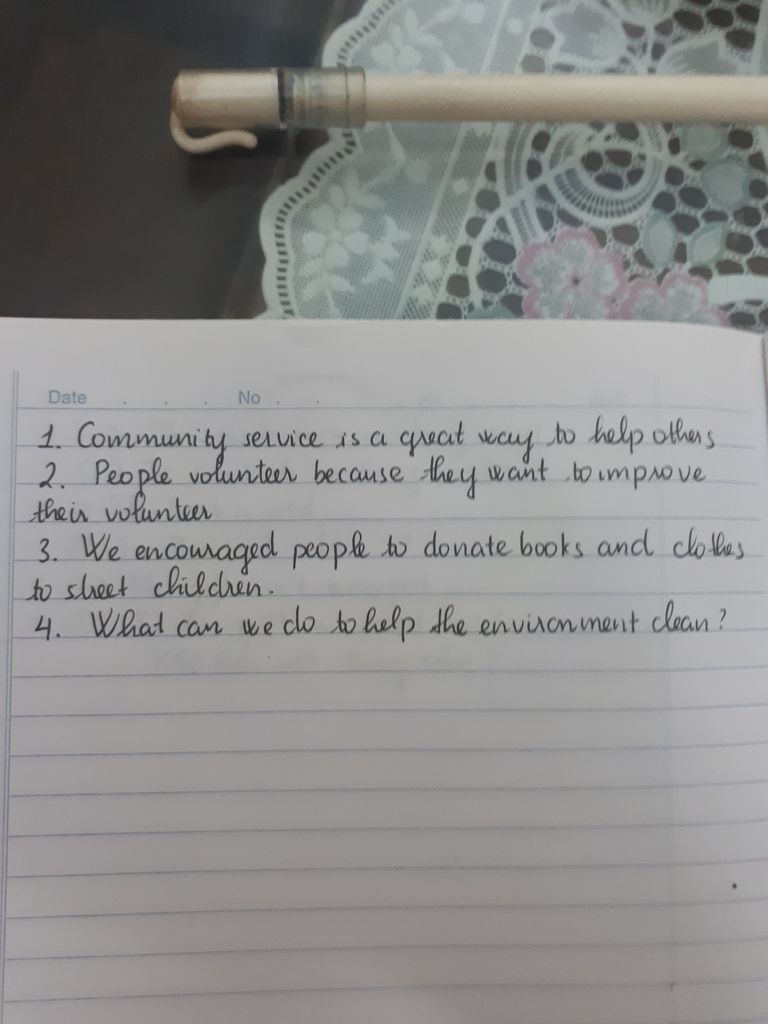 Date . . . No . .
1. Community service is a great way to help others
2. People volunteer because they want to improve
their volunteer
3. We encouraged people to donate books and clothes
to street children.
4. What can we do to help the environment clean?